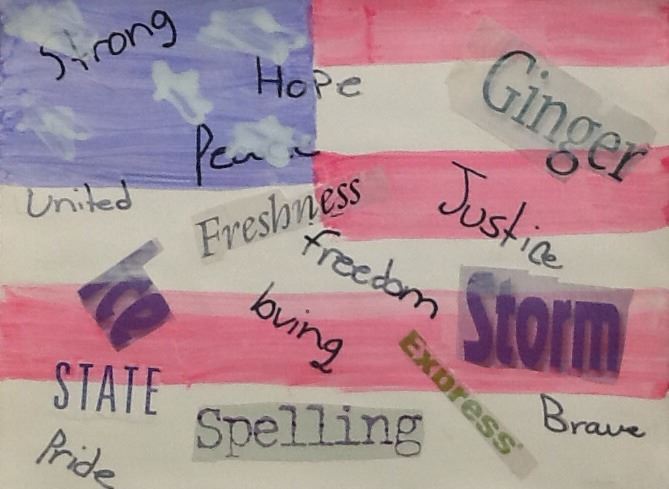 Strong
Hope
Ginger
Peace
United
Freshness
Justice
freedom
Ice
loving
Storm
Express
STATE
Spelling
Brave
Pride